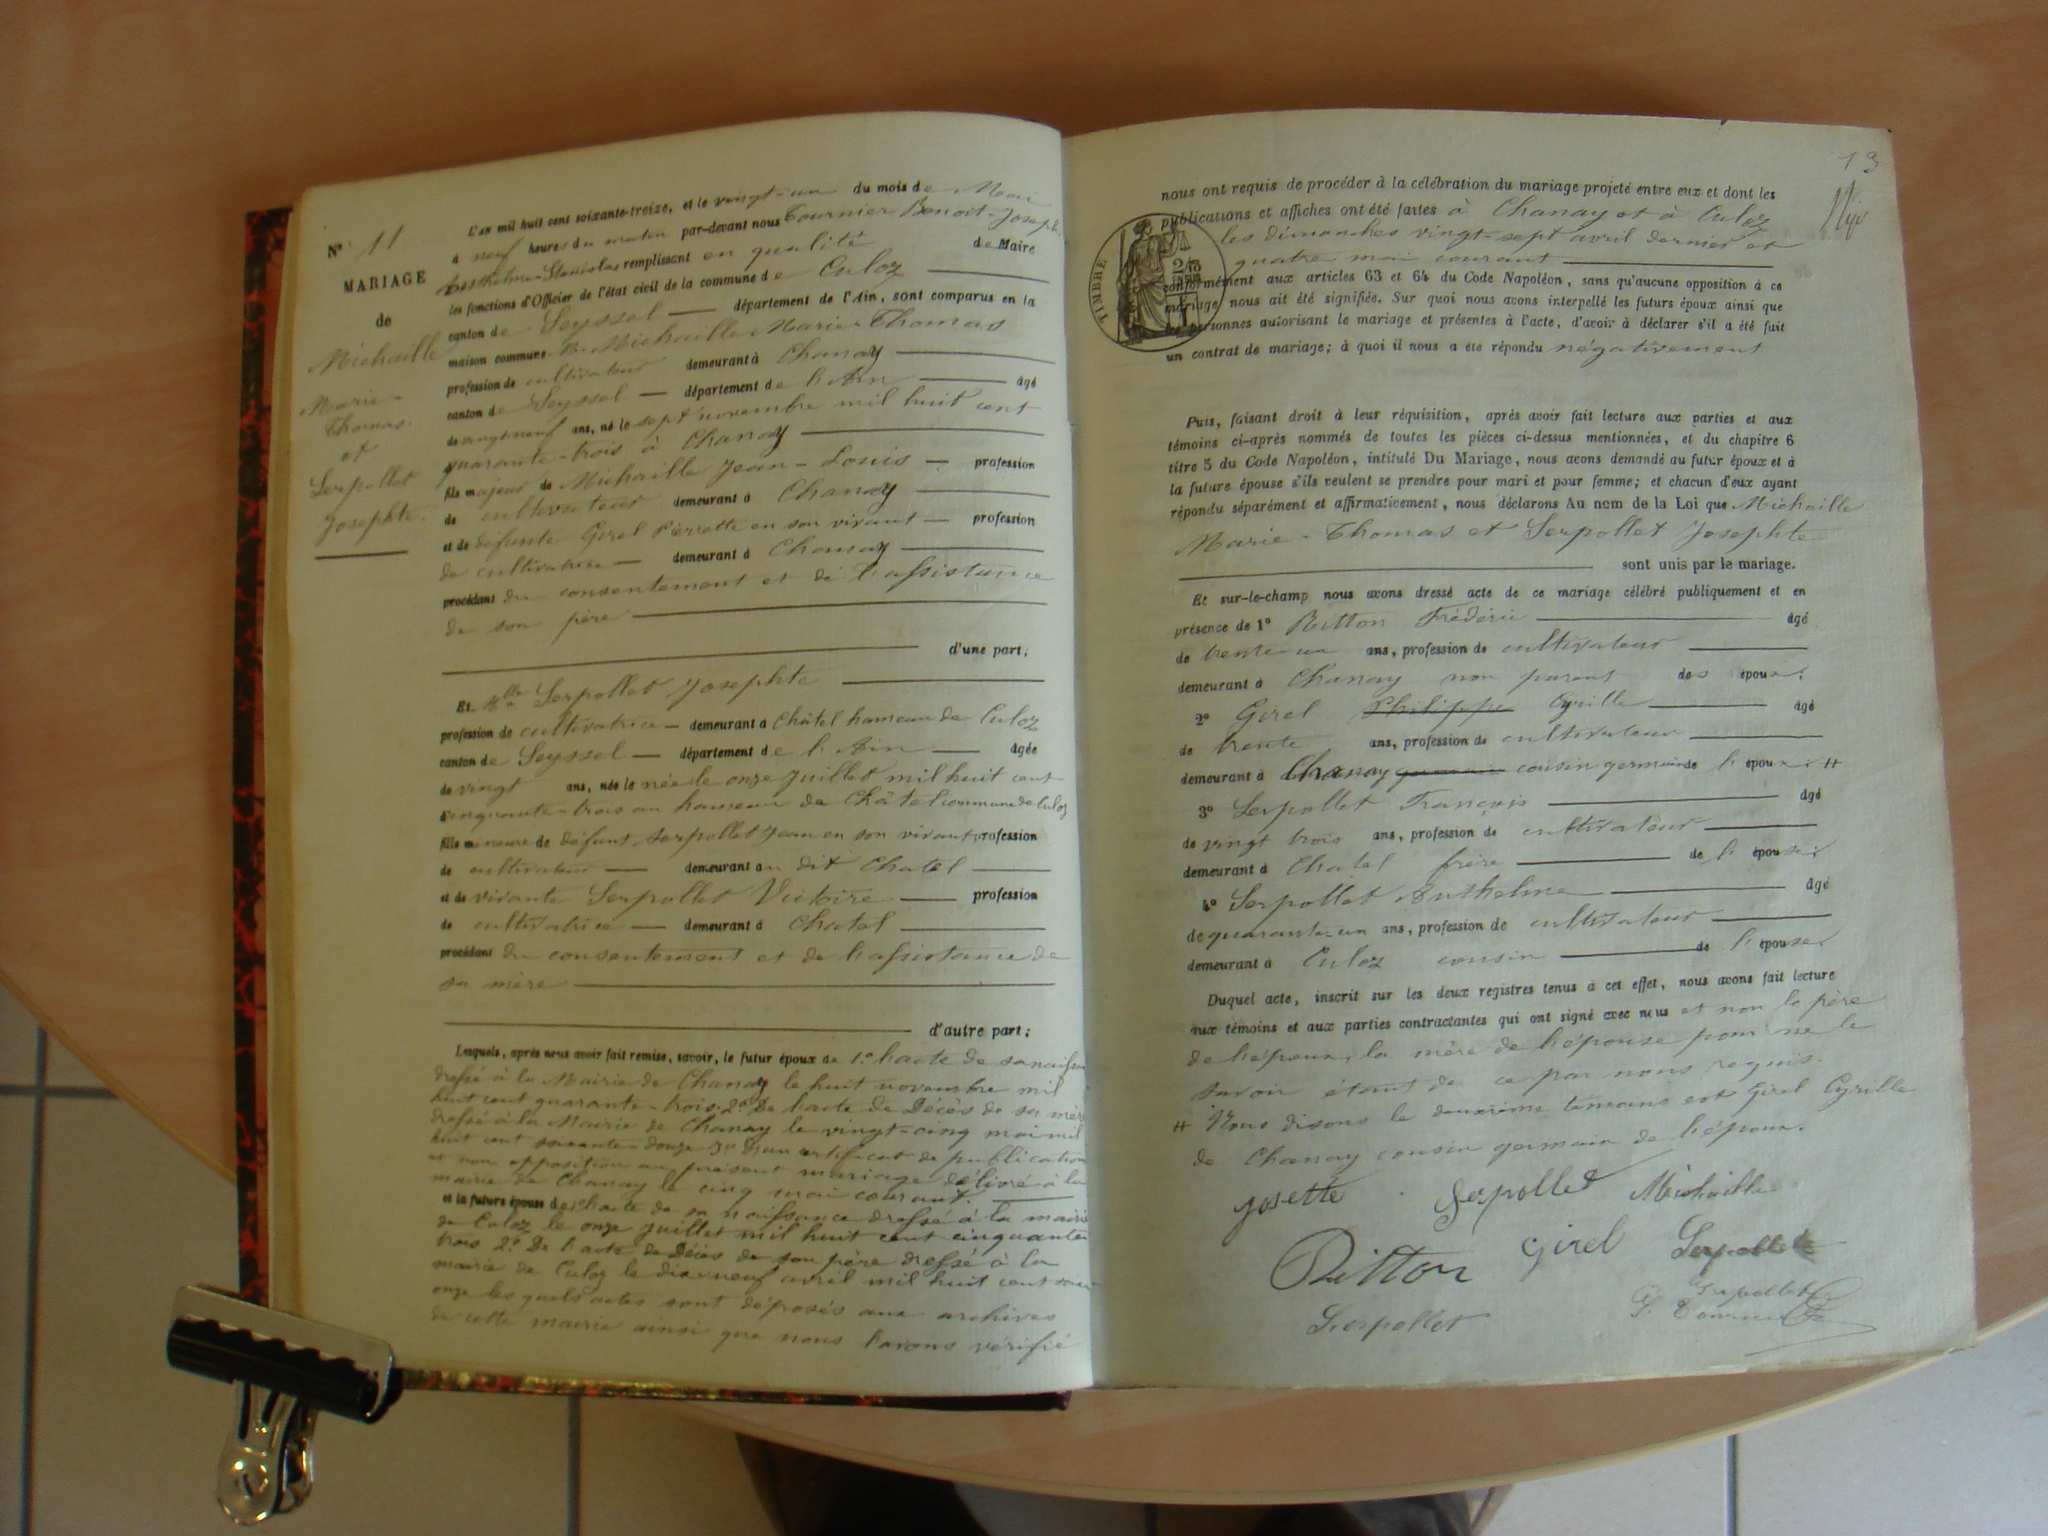 N° 11
MARIAGE
de
Michaille
Marie-
Thomas
et
Serpollet
Josephte.
L'an mil huit cent soixante-treize, et le vingt-un du mois de Mai
à neuf heures du matin par-devant nous Tournier Benoit-Joseph
Anthelme-Stanislas remplissant en qualité de Maire
les fonctions d'Officier de l'état civil de la commune de Culoz
canton de Seyssel département de l'Ain, sont comparus en la
maison commune Mr Michaille Marie-Thomas
profession de cultivateur demeurant à Chanay
canton de Seyssel département de l'Ain âgé
de vingt neuf ans, né le sept novembre mil huit cent
quarante-trois à Chanay
fils majeur de Michaille Jean-Louis profession
de cultivateur demeurant à Chanay
et de défunte Girel Pierrette en son vivant profession
de cultivatrice demeurant à Chanay
procédant du consentement et de l'assistance
de son père
d'une part;
Et Mlle Serpollet Josephte
profession de cultivatrice demeurant à Châtel hameau de Culoz
canton de Seyssel département de l'Ain âgée
de vingt ans, née le née le onze Juillet mil huit cent
cinquante-trois au hameau de Châtel commune de Culoz
fille mineure de défunt Serpollet Jean en son vivant profession
de cultivateur demeurant au dit Chatel
et de vivante Serpollet Victoire profession
de cultivatrice demeurant à Chatel
procédant du consentement et de l'assistance de
sa mère
d'autre part;
Lesquels, après nous avoir fait remise, savoir, le futur époux de 1.° l'acte de sa naissan
dressé à la Mairie de Chanay le huit novembre mil
huit cent quarante-trois; 2° De l'acte de Décès de sa mère
dressé à la Mairie de Chanay le vingt-cinq mai mil
huit cent soixante-douze 3° D'un certificat de publication
et non opposition au présent mariage délivré à la
mairie de Chanay le cinq mai courant.
et la future épouse de l'acte de sa naissance dressé à la mairie
de Culoz le onze Juillet mil huit cent cinquante
trois 2° De l'acte de Décès de son père dressé à la
mairie de Culoz le dix-neuf avril mil huit cent
onze lesquels actes sont déposés aux archives
de cette mairie ainsi que nous l'avons vérifié
13
nous ont requis de procéder à la célébration du mariage projeté entre eux et dont les
publications et affiches ont été faites à Chanay et à Culoz
les dimanches vingt-sept avril dernier et
quatre mai courant
TIMBRE
conformément aux articles 63 et 64 du Code Napoléon, sans qu'aucune opposition à ce
mariage nous ait été signifiée. Sur quoi nous avons interpellé les futurs époux ainsi que
les personnes autorisant le mariage et présentes à l'acte, d'avoir à déclarer s'il a été fait
un contrat de mariage; à quoi il nous a été répondu négativement
Puis, faisant droit à leur réquisition, après avoir fait lecture aux parties et aux
témoins ci-après nommés de toutes les pièces ci-dessus mentionnées, et du chapitre 6
titre 5 du Code Napoléon, intitulé Du Mariage, nous avons demandé au futur époux et à
la future épouse s'ils veulent se prendre pour mari et pour femme; et chacun d'eux ayant
répondu séparément et affirmativement, nous déclarons Au nom de la Loi que Michaille
Marie-Thomas et Serpollet Josephte
sont unis par le mariage.
Et sur-le-champ nous avons dressé acte de ce mariage célébré publiquement et en
présence de 1° Bitton Frédéric âgé
de trente-un ans, profession de cultivateur
demeurant à Chanay non parent des époux.
2° Girel Philippe Cyrille âgé
de trente ans, profession de cultivateur
demeurant à Chanay germain cousin germain de l'époux. #
3° Serpollet François âgé
de vingt trois ans, profession de cultivateur
demeurant à Chatel frère de l'épouse
4° Serpollet Anthelme âgé
de quarante-un ans, profession de cultivateur
demeurant à Culoz cousin de l'épouse
Duquel acte, inscrit sur les deux registres tenus à cet effet, nous avons fait lecture
aux témoins et aux parties contractantes qui ont signé avec nous et non le père
de l'époux, la mère de l'épouse pour ne le
savoir étant de ce par nous requis.
# Nous disons le deuxième témoins est Girel Cyrille
de Chanay cousin germain de l'époux.
Josette Serpollet Michaille
Bitton Girel Serpollet
Serpollet
Serpollet